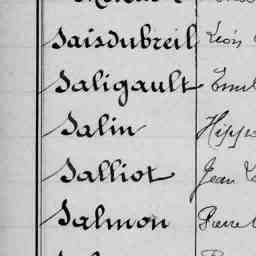 Saisdubreil Léon
Saligault
Salin
Salliot Jean
Salmon Pierre